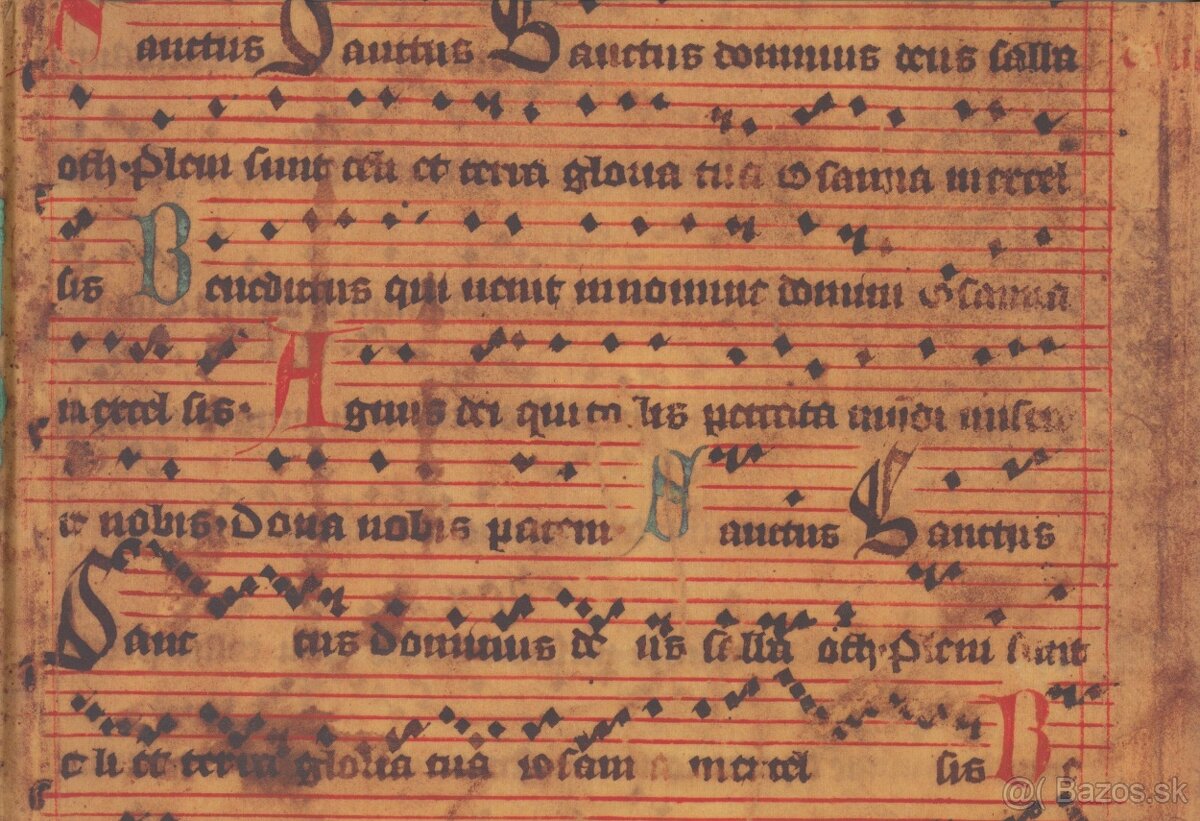 Sanctus Sanctus Sanctus dominus deus saba
oth. Pleni sunt celi et terra gloria tua Osanna in excel
sis Benedictus qui uenit in nomine domini Osanna
in excel sis. Agnus dei qui to lis peccata mundi misere
re nobis. Dona nobis pacem Sanctus Sanctus
Sanc tus dominus de us sa baa oth. Pleni sunt
ce li et terra gloria tua osann a in excel sis Be
@( Bazos.sk